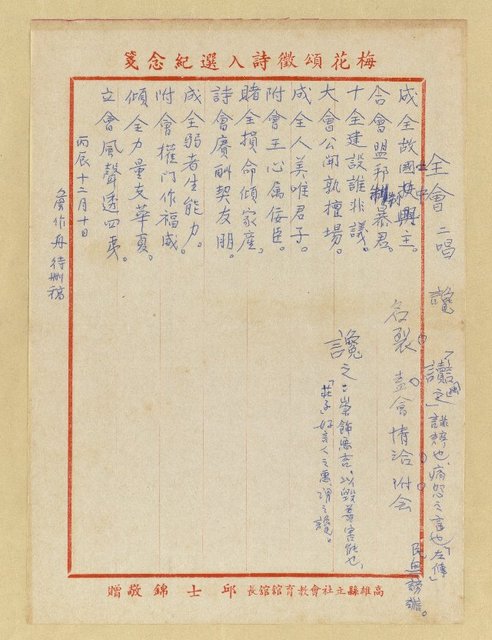 梅花頌徵詩入選紀念箋
全會 二唱
成全故國 興王。
合會盟邦制暴君。
十全建設誰非議。
大會公開孰擅場。
成全人美唯君子。
附會王心屬佞臣。
賭全損命傾家產。
詩會賡酬契友朋。
成全弱者生能力。
附會權門作福威。
傾全力量支華夏。
立會風聲透四夷。
丙辰十二月十日
作舟 待刪稿
讒
名裂 會情洽附会
讒之：崇飾惡言，以毀善害能也，
「莊子」好言人之惡謂之讒。
讟 謗也，痛怨之言也「左傳」
民無謗讟。
高雄縣立社會教育館館長 邱士錦敬贈